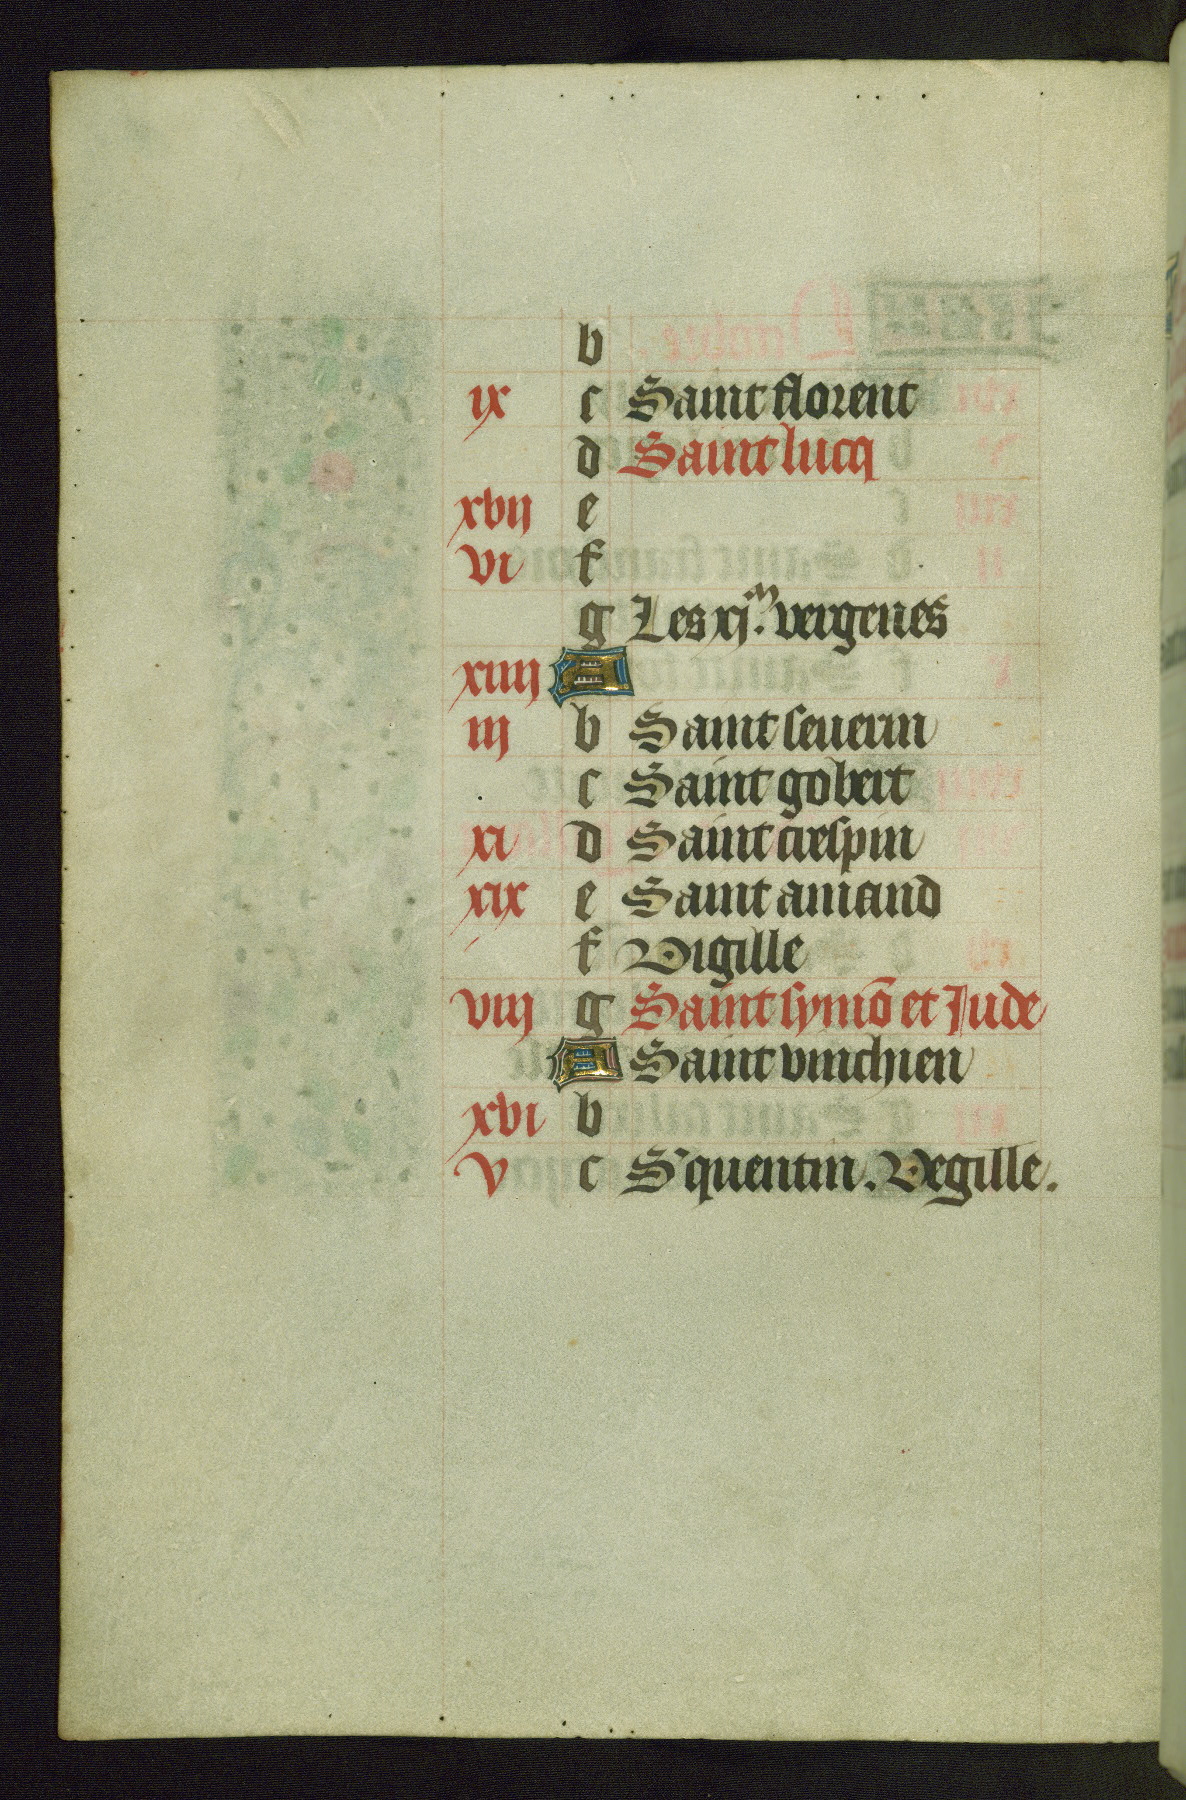 b
ix c Saint florent
d Saint lucq
xvij e
vi f
g Les xjᵐ. vergenes
xiiij A
iij b Saint seuerin
c Saint gobert
xi d Saint crespin
xix e Saint amand
f Vigille
viij g Saint symō et Jude
A Saint vinchien
xvi b
v c S' quentin. Vegille.